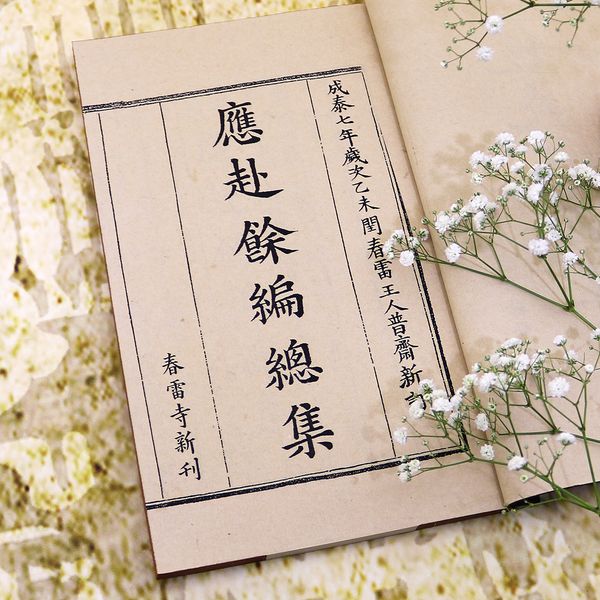 成泰七年歲次乙未閏春雷王人普齋新訂
應赴餘編總集
春雷寺新刊